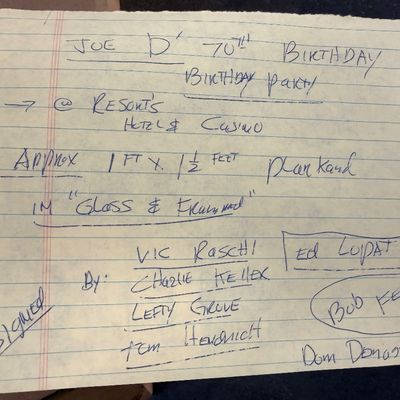 JOE D' 70TH BIRTHDAY
BIRTHDAY PARTY
→ @ RESORTS
HOTEL & CASINO
APPROX 1 FT X. 1 1/2 FEET
IN "GLASS &
SIGNED
By: VIC RASCHI
CHARLIE KELLER
LEFTY GROVE
TOM HENDRICH
ED LOPAT
BOB FE
DOM